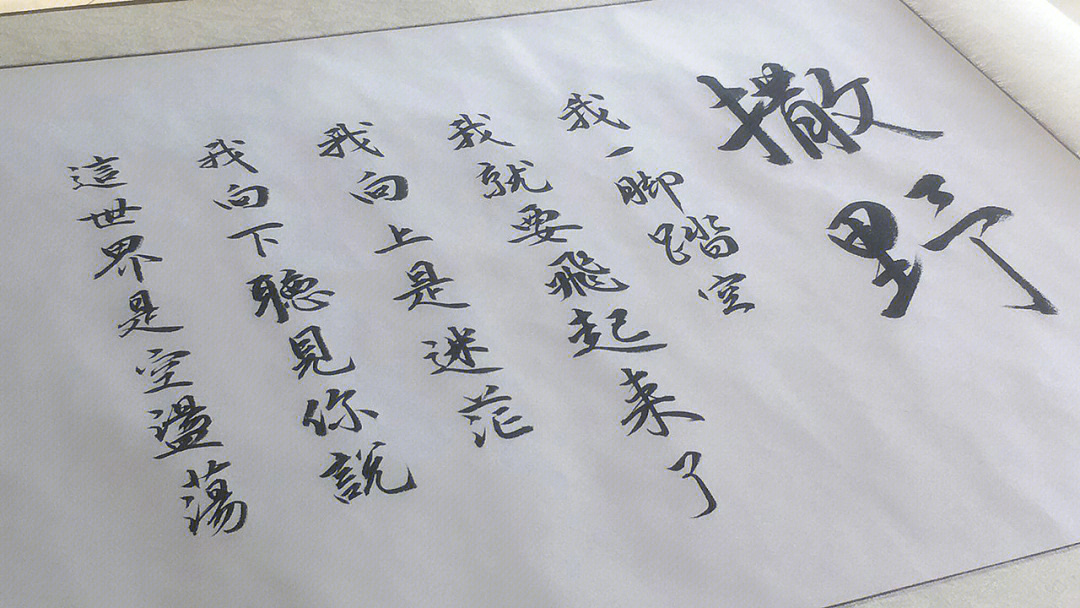 撒野
我一脚踏空
我就要飛起来了
我向上是迷茫
我向下聽見你説
這世界是空盪蕩